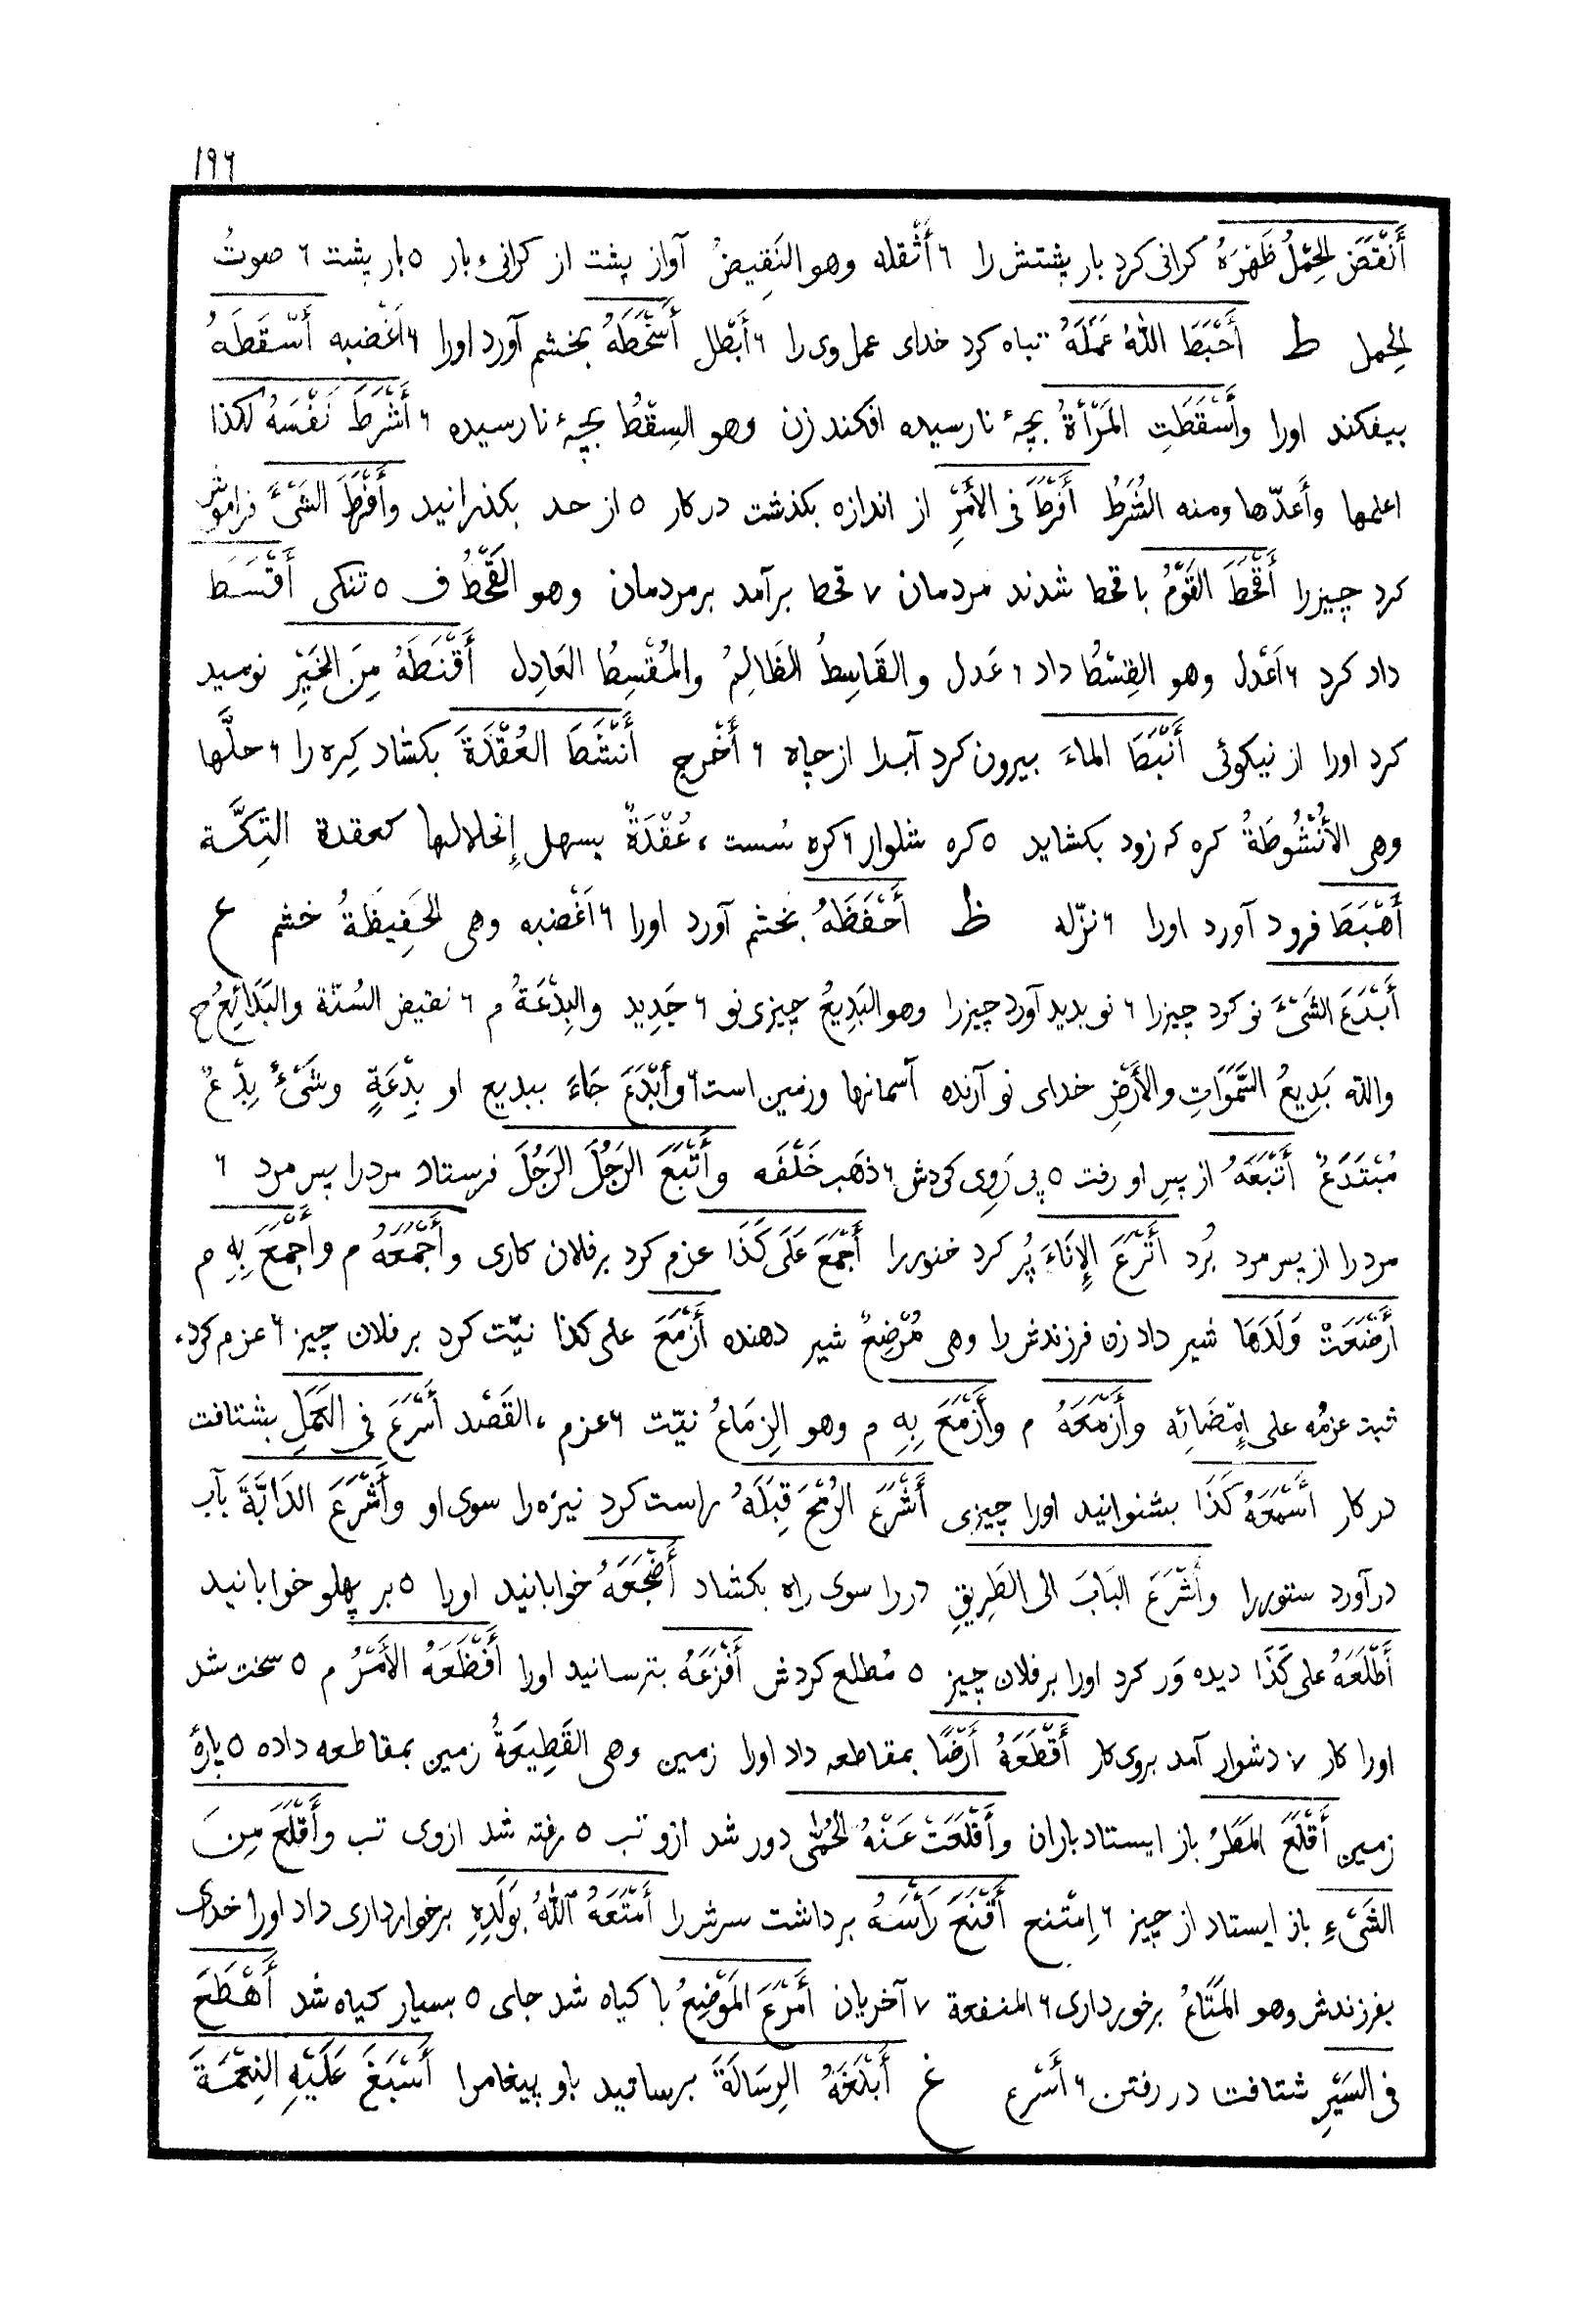 ۱۹۶
أَنْقَضَ الحِمْلُ ظَهْرَهُ گرانی کرد بار پشتش را ۶ أَثْقله وهو النَقِيضُ آواز پشت از گرانیء بار ۵ بار پشت ۶ صوتُ
الحِمل ط أَحْبَطَ اللهُ عَمَلَهُ تباه کرد خدای عمل وی را ۶ أَبْطل أَسْخَطَهُ بخشم آورد اورا ۶ اَغْضبه أَسْقَطَهُ
بیفکند اورا وأَسْقَطَتِ المَرْأَةُ بچهٔ نارسیده افکند زن وهو السِقْطُ بچهٔ نارسیده ۶ أَشْرَطَ نَفْسَهُ لکذا
اعلمها وأَعدّها ومنه الشُرَطُ أَفْرَطَ فی الأَمْرِ از اندازه بکذشت در کار ۵ از حد بکذرانید وأَفْرَطَ الشَیْءَ فراموش
کرد چیزرا أَقْحَطَ القَوْمُ با قحط شدند مردمان ۷ قحط برآمد بر مردمان وهو القَحْطُ ف ۵ تنکی أَقْسَطَ
داد کرد ۶ اَعْدل وهو القِسْطُ داد ۶ عَدل والقَاسِطُ الظَالِمُ والمُقْسِطُ العَادِل أَقْنَطَهُ مِنَ الخَيْرِ نومید
کرد اورا از نیکوئی أَنْبَطَ الماءَ بیرون کرد آبرا از چاه ۶ أَخْرج أَنْشَطَ العُقْدَةَ بکشاد کِره را ۶ حلَّها
وهی الأُنْشُوطَةُ کره که زود بکشاید ۵ کره شلوار ۶ کره سُست ، عُقْدَةٌ یسهل إِنحلالها کعقدة التِکَّة
أَهْبَطَ فرود آورد اورا ۶ نزّله ظ أَحْفَظَهُ بخشم آورد اورا ۶ اَغْضبه وهی الحَفِيظَةُ خشم ع
أَبْدَعَ الشَیْءَ نو کرد چیزرا ۶ نو بدید آورد چیزرا وهو البَدِيعُ چیزی نو ۶ جَدِید والبِدْعَةُ م ۶ نقیض السُنّة والبَدَائِعُ ج
والله بَدِيعُ السَّمَوَاتِ والأَرْضِ خدای نو آرنده آسمانها و زمین است ۶ وأَبْدَعَ جَاءَ ببدیع او بِدْعَةٍ وشَیْءٌ بِدْعٌ
مُبْتَدَعٌ أَتْبَعَهُ از پسِ او رفت ۵ پی رَوِی کردش ۶ ذهَب خَلْفَه وأَتْبَعَ الرَجُلَ الرَجُلَ فرستاد مردرا پسِ مرد ۶
مردرا از پس مرد بُرد أَتْرَعَ الإِنَاءَ پُر کرد خنوررا أَجْمَعَ عَلَى کَذَا عزم کرد بر فلان کاری وأَجْمَعَهُ م وأَجْمَعَ بِهِ م
أَرْضَعَتْ وَلَدَهَا شیر داد زن فرزندش را وهی مُرْضِعٌ شیر دهنده أَزْمَعَ علی کذا نیّت کرد بر فلان چیز ۶ عزم کرد ،
ثبت عزمُه علی إِمْضَائِه وأَزْمَعَهُ م وأَزْمَعَ بِهِ م وهو الزِمَاعُ نیّت ۶ عزم ، القَصْد أَسْرَعَ فی العَمَلِ بشتافت
در کار أَسْمَعَهُ کَذَا بشنوانید اورا چیزی أَشْرَعَ الرُمْحَ قِبَلَهُ راست کرد نیزه را سوی او وأَشْرَعَ الدَابَّةَ بآب
درآورد ستوررا وأَشْرَعَ البَابَ الی الطَرِيقِ دررا سوی راه بکشاد أَضْجَعَهُ خوابانید اورا ۵ بر پهلو خوابانید
أَطْلَعَهُ علی کَذَا دیده وَر کرد اورا بر فلان چیز ۵ مُطلع کردش أَفْزَعَهُ بترسانید اورا أَفْظَعَهُ الأَمْرُ م ۵ سخت شد
اورا کار ۷ دشوار آمد بروی کار أَقْطَعَهُ أَرْضًا بمقاطعه داد اورا زمین وهی القَطِيعَةُ زمین بمقاطعه داده ۵ پارهٔ
زمین أَقْلَعَ المَطَرُ باز ایستاد باران وأَقْلَعَتْ عَنْهُ الحُمَّى دور شد ازو تب ۵ رفته شد ازوی تب وأَقْلَعَ مِنَ
الشَیْءِ باز ایستاد از چیز ۶ اِمْتنع أَقْنَعَ رَأْسَهُ برداشت سرش را أَمْتَعَهُ اللهُ بِوَلَدِهِ برخوارداری داد اورا خدای
بفرزندش وهو المَتَاعُ برخورداری ۶ المنفعة ۷ آخریان أَمْرَعَ المَوْضِعُ با کیاه شد جای ۵ بسیار کیاه شد أَهْطَعَ
فی السَيْرِ شتافت در رفتن ۶ أَسْرع غ أَبْلَغَهُ الرِسَالَةَ برسانید باو پیغامرا أَسْبَغَ عَلَيْهِ النِعْمَةَ